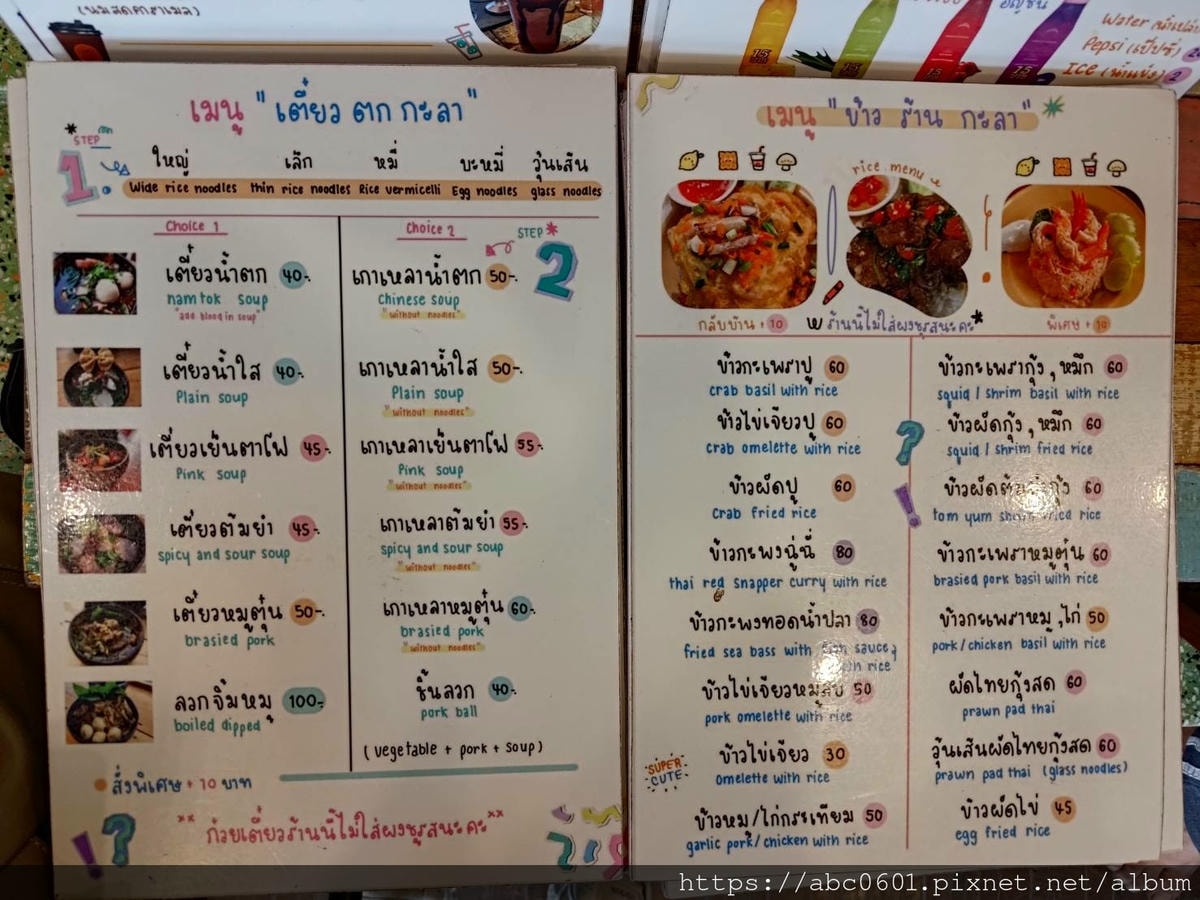 (นมสดคาราเมล)
15
15
15
15
Water น้ำเปล่า
Pepsi (เป๊ปซี่)
ICE (น้ำแข็ง) 2
เมนู "เตี๋ยว ตก กะลา"
STEP
1.
ใหญ่ เล็ก หมี่ บะหมี่ วุ้นเส้น
Wide rice noodles thin rice noodles Rice vermicelli Egg noodles glass noodles
Choice 1
เตี๋ยวน้ำตก 40.-
namtok soup
"add blood in soup"
เตี๋ยวน้ำใส 40.-
Plain soup
เตี๋ยวเย็นตาโฟ 45.-
Pink soup
เตี๋ยวต้มยำ 45.-
spicy and sour soup
เตี๋ยวหมูตุ๋น 50.-
brasied pork
ลวกจิ้มหมู 100.-
boiled dipped
Choice 2
STEP
2
เกาเหลาน้ำตก 50.-
Chinese soup
"without noodles"
เกาเหลาน้ำใส 50.-
Plain soup
"without noodles"
เกาเหลาเย็นตาโฟ 55.-
Pink soup
"without noodles"
เกาเหลาต้มยำ 55.-
spicy and sour soup
"without noodles"
เกาเหลาหมูตุ๋น 60.-
brasied pork
"without noodles"
ชิ้นลวก 40.-
pork ball
(vegetable + pork + soup)
สั่งพิเศษ + 10 บาท
** ก๋วยเตี๋ยวร้านนี้ไม่ใส่ผงชูรสนะคะ **
!?
เมนู "ข้าว ร้าน กะลา"
rice menu
กลับบ้าน + 10
ร้านนี้ไม่ใส่ผงชูรสนะคะ*
พิเศษ + 10
ข้าวกะเพราปู 60
crab basil with rice
ข้าวไข่เจียวปู 60
crab omelette with rice
ข้าวผัดปู 60
Crab fried rice
ข้าวกะพงฉู่ฉี่ 80
thai red snapper curry with rice
ข้าวกะพงทอดน้ำปลา 80
fried sea bass with fish sauce
with rice
ข้าวไข่เจียวหมูสับ 50
pork omelette with rice
SUPER CUTE
ข้าวไข่เจียว 30
omelette with rice
ข้าวหมู/ไก่กระเทียม 50
garlic pork/chicken with rice
?
!
ข้าวกะเพรากุ้ง, หมึก 60
squid / shrimp basil with rice
ข้าวผัดกุ้ง, หมึก 60
squid / shrim fried rice
ข้าวผัดต้มยำกุ้ง 60
tom yum shrim fried rice
ข้าวกะเพราหมูตุ๋น 60
brasied pork basil with rice
ข้าวกะเพราหมู, ไก่ 50
pork/chicken basil with rice
ผัดไทยกุ้งสด 60
prawn pad thai
วุ้นเส้นผัดไทยกุ้งสด 60
prawn pad thai (glass noodles)
ข้าวผัดไข่ 45
egg fried rice
https://abc0601.pixnet.net/album